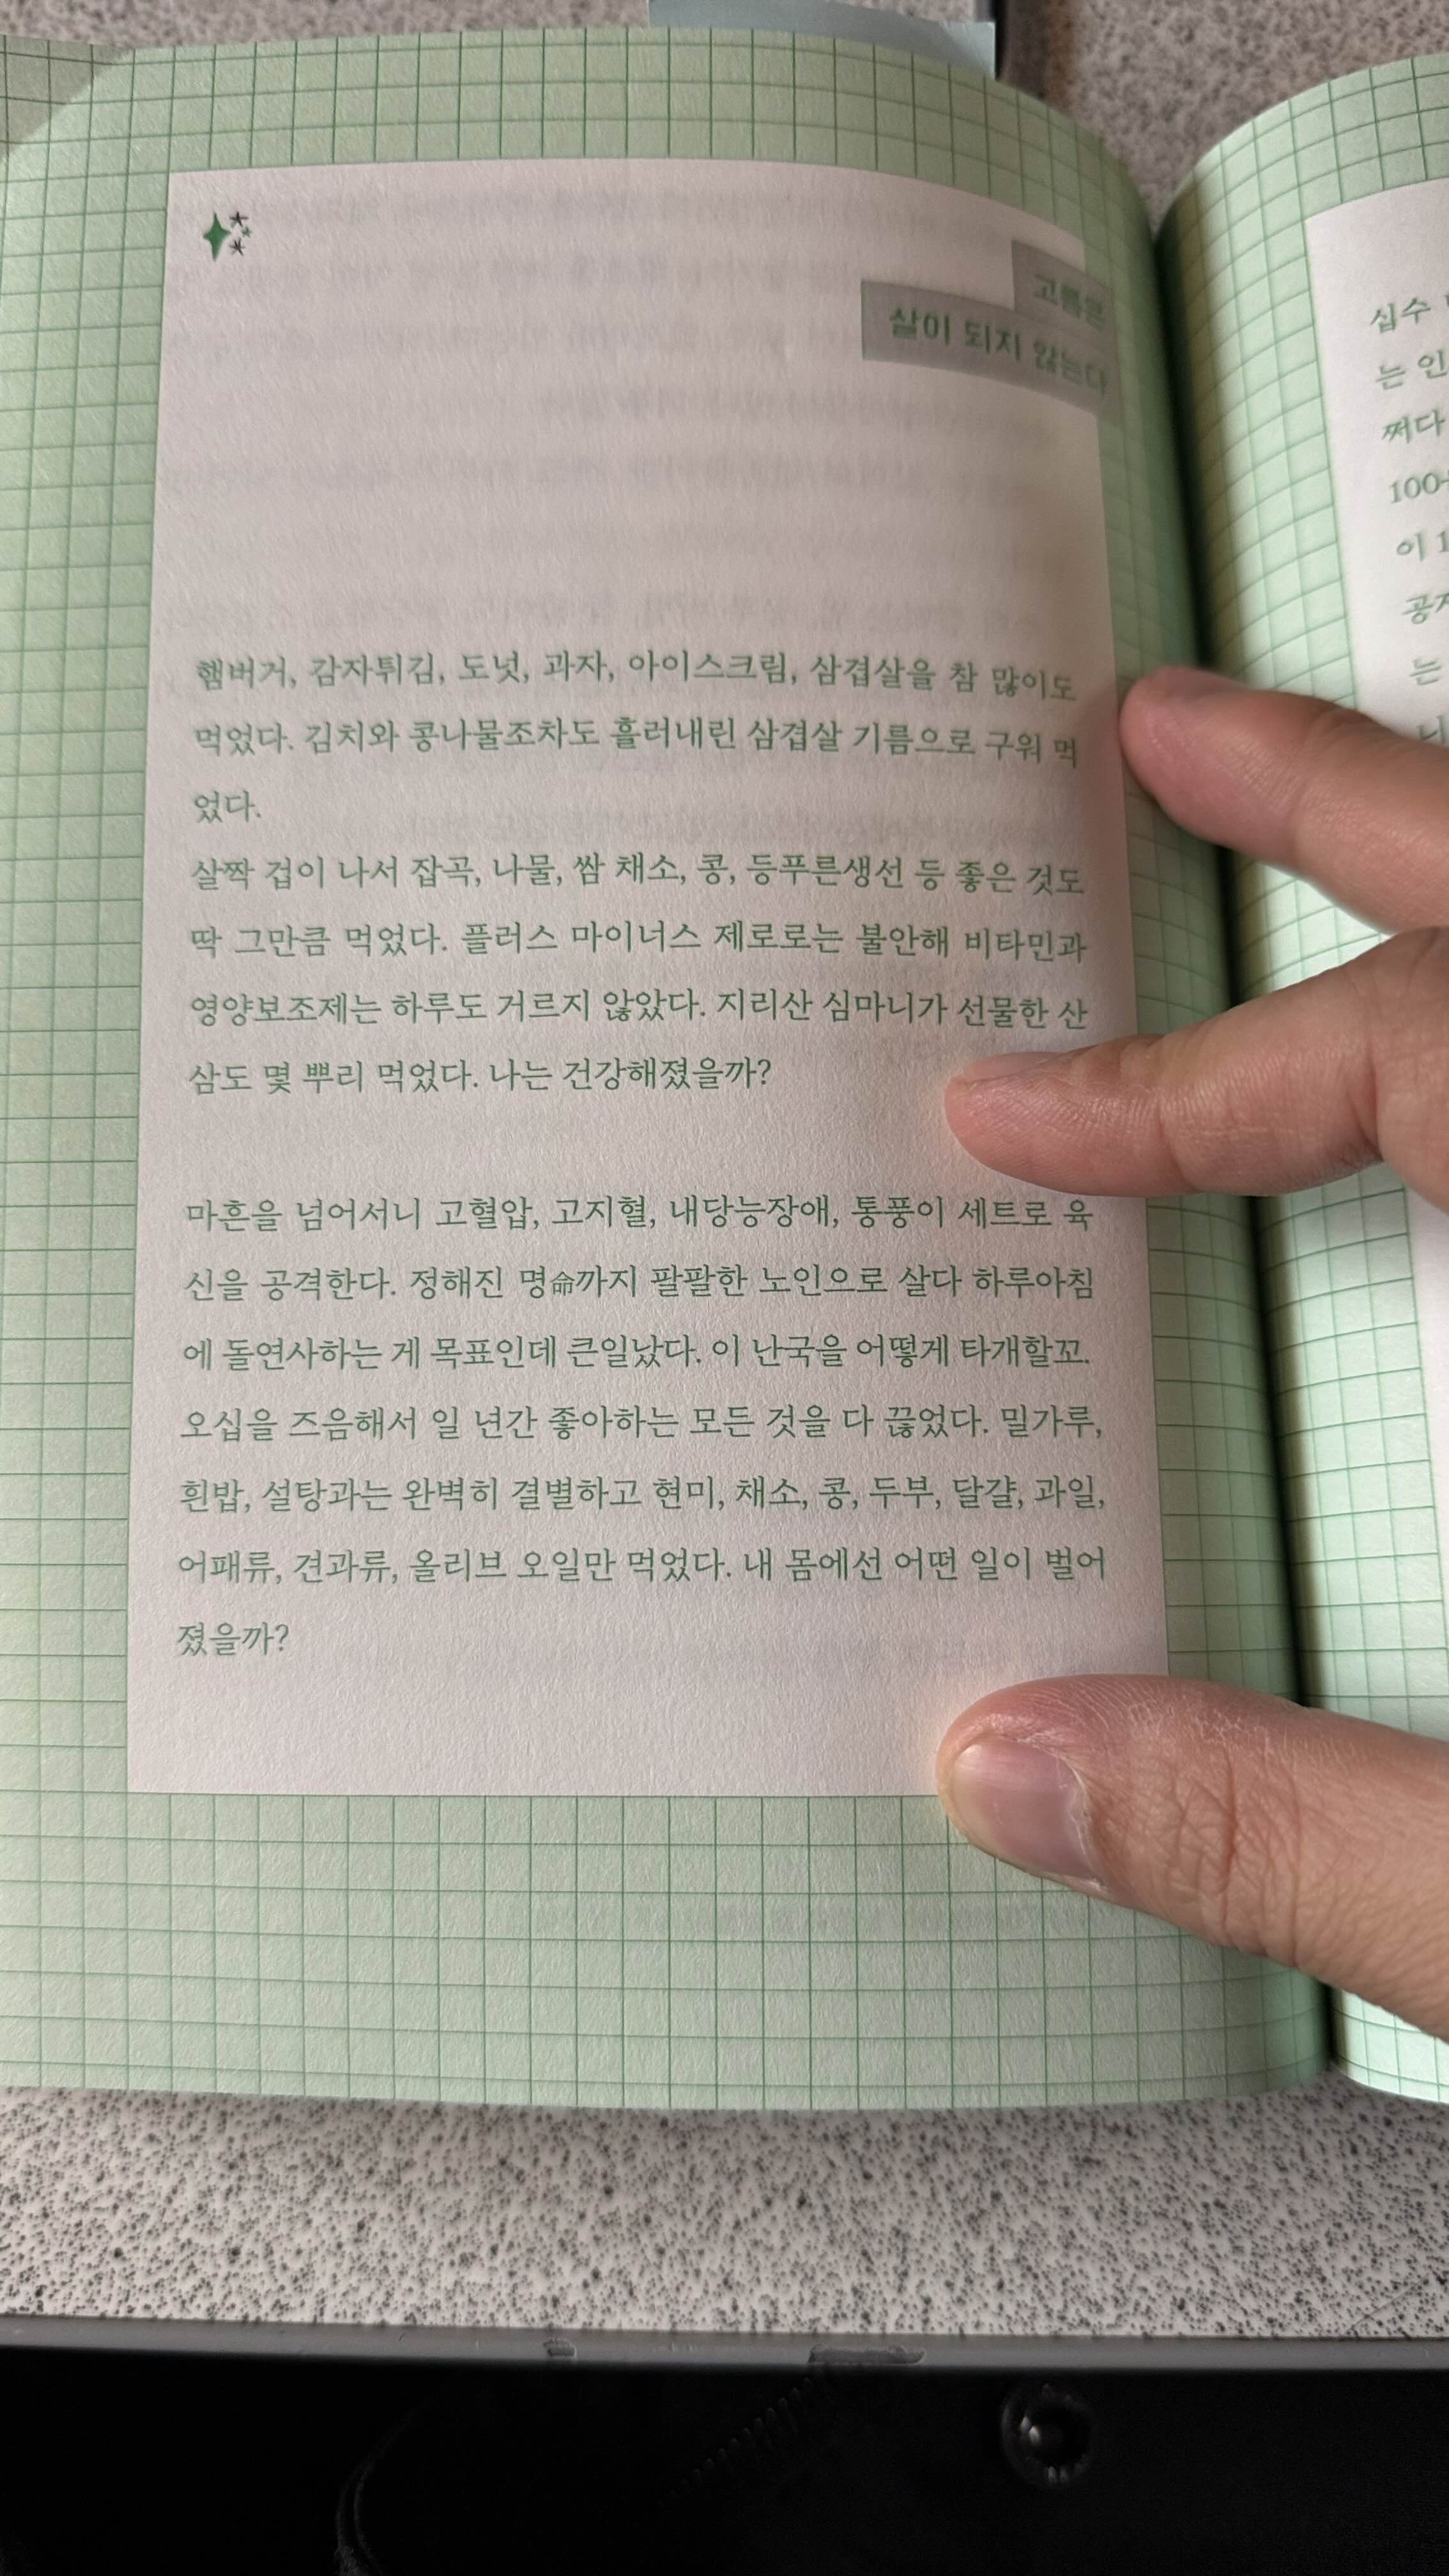 고름은
살이 되지 않는다
햄버거, 감자튀김, 도넛, 과자, 아이스크림, 삼겹살을 참 많이도
먹었다. 김치와 콩나물조차도 흘러내린 삼겹살 기름으로 구워 먹
었다.
살짝 겁이 나서 잡곡, 나물, 쌈 채소, 콩, 등푸른생선 등 좋은 것도
딱 그만큼 먹었다. 플러스 마이너스 제로로는 불안해 비타민과
영양보조제는 하루도 거르지 않았다. 지리산 심마니가 선물한 산
삼도 몇 뿌리 먹었다. 나는 건강해졌을까?
마흔을 넘어서니 고혈압, 고지혈, 내당능장애, 통풍이 세트로 육
신을 공격한다. 정해진 명命까지 팔팔한 노인으로 살다 하루아침
에 돌연사하는 게 목표인데 큰일났다. 이 난국을 어떻게 타개할꼬.
오십을 즈음해서 일 년간 좋아하는 모든 것을 다 끊었다. 밀가루,
흰밥, 설탕과는 완벽히 결별하고 현미, 채소, 콩, 두부, 달걀, 과일,
어패류, 견과류, 올리브 오일만 먹었다. 내 몸에선 어떤 일이 벌어
졌을까?
십수
는 인
쩌다
100
이 1
는